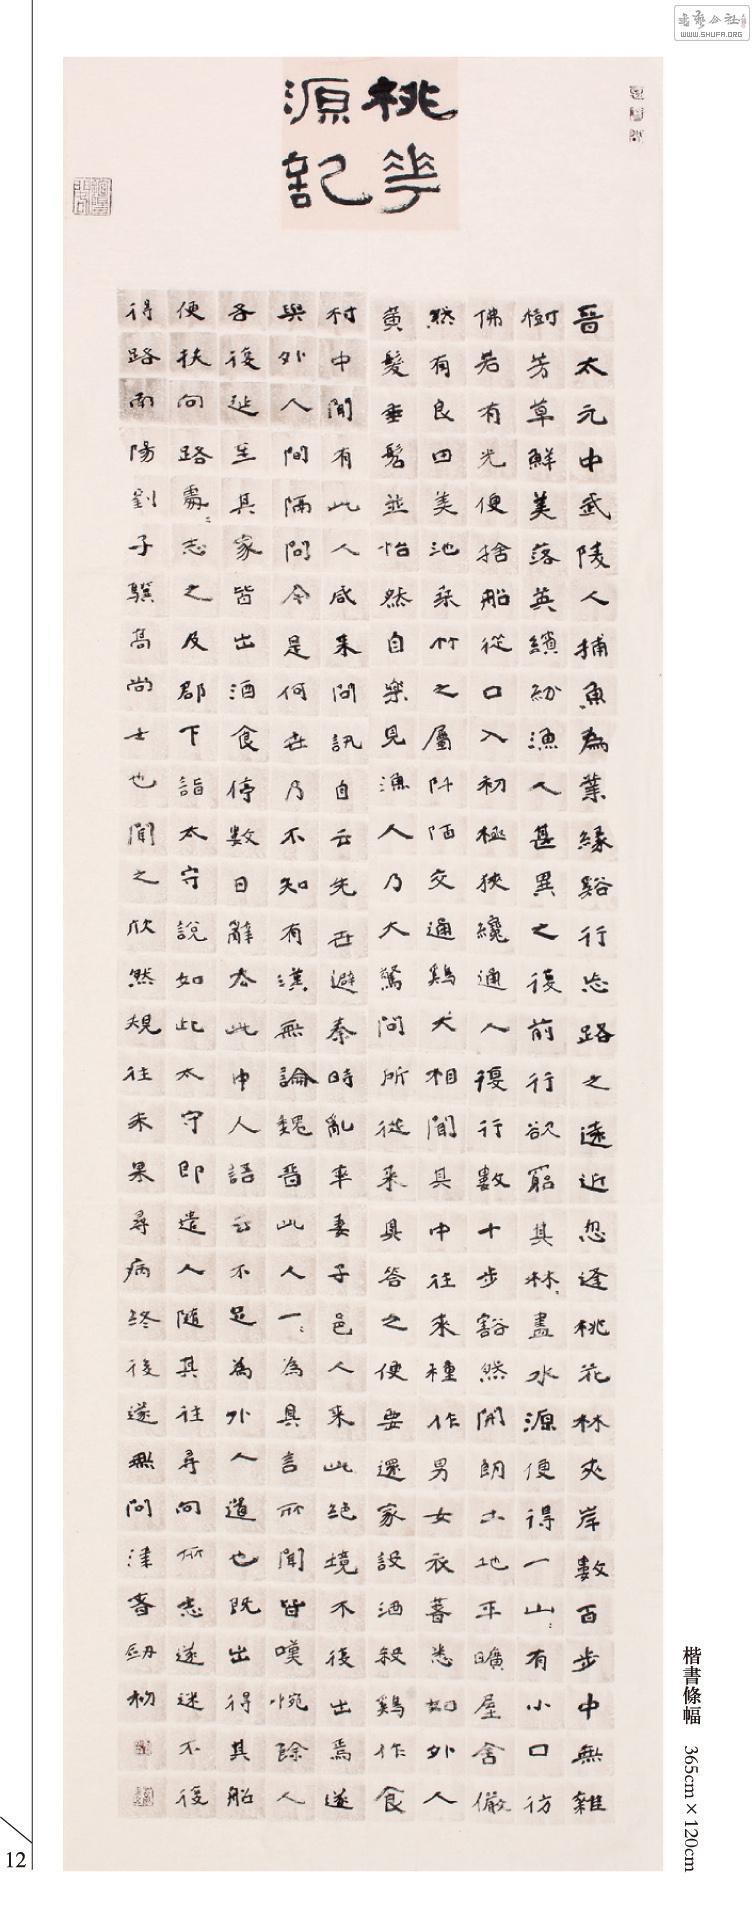 書藝公社
WWW.SHUFA.ORG
桃花
源記
晉太元中武陵人捕魚為業緣谿行忘路之遠近忽逢桃花林夾岸數百步中無雜
樹芳草鮮美落英繽紛漁人甚異之復前行欲窮其林〻盡水源便得一山〻有小口彷
佛若有光便捨船從口入初極狹纔通人復行數十步豁然開朗土地平曠屋舍儼
然有良田美池桑竹之屬阡陌交通鷄犬相聞其中往來種作男女衣著悉如外人
黃髮垂髫並怡然自樂見漁人乃大驚問所從來具答之便要還家設酒殺鷄作食
村中聞有此人咸來問訊自云先世避秦時亂率妻子邑人來此絕境不復出焉遂
與外人間隔問今是何世乃不知有漢無論魏晉此人一〻為具言所聞皆嘆惋餘人
各復延至其家皆出酒食停數日辭去此中人語云不足為外人道也既出得其船
便扶向路處〻志之及郡下詣太守說如此太守即遣人隨其往尋向所志遂迷不復
得路南陽劉子驥高尚士也聞之欣然規往未果尋病終後遂無問津者
楷書條幅 365cm×120cm
12